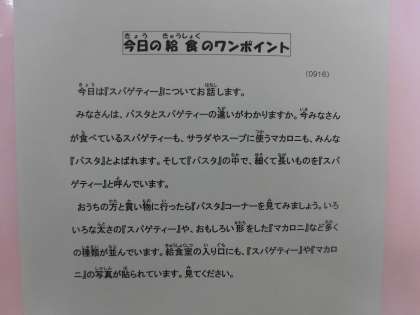 今日の給食のワンポイント
(0916)
今日は『スパゲティー』についてお話します。
みなさんは、パスタとスパゲティーの違いがわかりますか。今みなさん
が食べているスパゲティーも、サラダやスープに使うマカロニも、みんな
『パスタ』とよばれます。そして『パスタ』の中で、細くて長いものを『スパ
ゲティー』と呼んでいます。
おうちの方と買い物に行ったら『パスタ』コーナーを見てみましょう。いろ
いろな太さの『スパゲティー』や、おもしろい形をした『マカロニ』など多く
の種類が並んでいます。給食室の入り口にも、『スパゲティー』や『マカロ
ニ』の写真が貼られています。見てください。